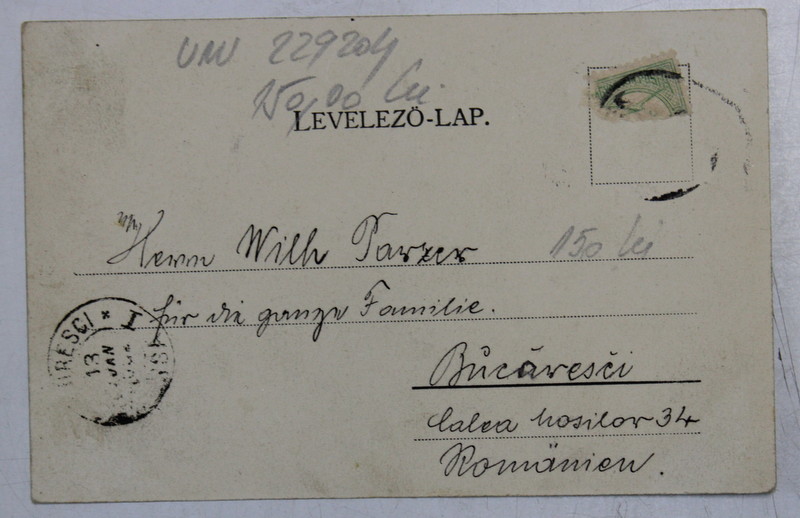 UNU 229204
150,00 lei
LEVELEZÖ-LAP.
Herrn Wilh Parzer
150 lei
für die ganze Familie.
Bŭcăresci
Calea Mosilor 34
Românien.
RESCI * I
13
JAN